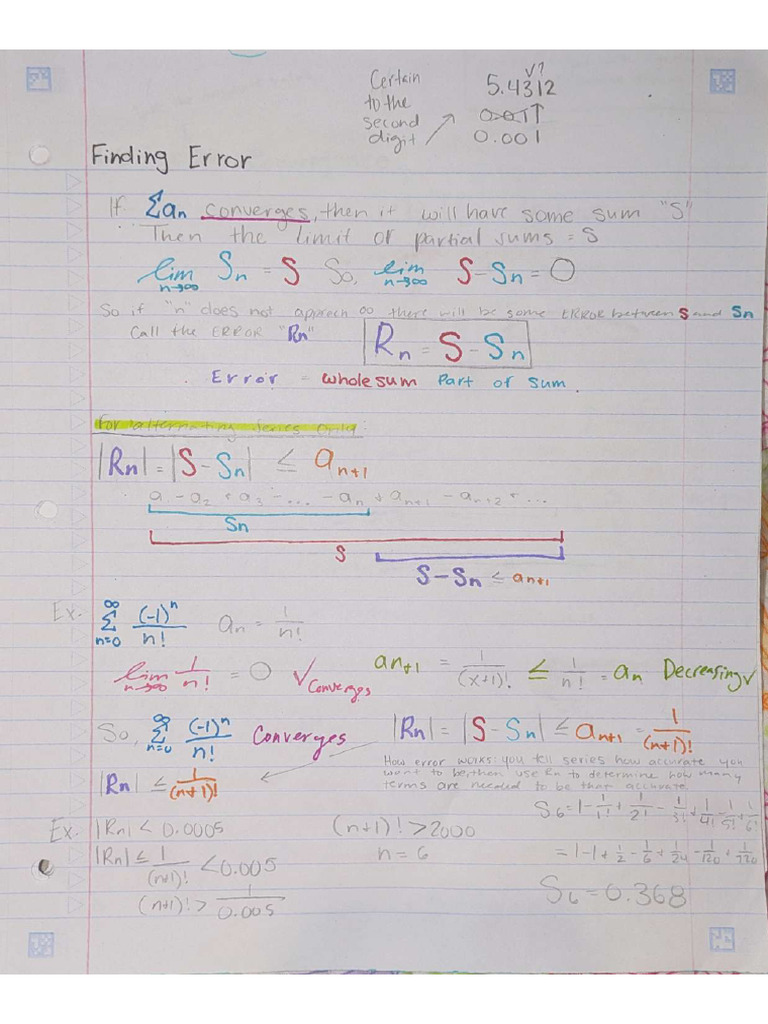 Certain
to the
second
digit
✓?
5.4312
0.01
0.001
Finding Error
If Σan converges, then it will have some sum "S"
Then the limit of partial sums = S
lim n→∞ Sn = S So, lim n→∞ S-Sn = 0
So if "n" does not approach ∞ there will be some ERROR between S and Sn
Call the ERROR "Rn" Rn = S - Sn
Error = whole sum Part of sum.
For alternating series only:
|Rn| = |S - Sn| ≤ an+1
a1 - a2 + a3 - ... - an + an+1 - an+2 + ...
Sn
S
S-Sn ≤ an+1
Ex. ∞ Σ n=0 (-1)^n / n! an = 1/n!
lim n→∞ 1/n! = 0 ✓ Converges an+1 = 1/(x+1)! ≤ 1/n! = an Decreasing ✓
So, ∞ Σ n=0 (-1)^n / n! Converges |Rn| = |S - Sn| ≤ an+1 = 1/(n+1)!
How error works: you tell series how accurate you
want to be, then use Rn to determine how many
terms are needed to be that accurate.
|Rn| ≤ 1/(n+1)!
Ex. |Rn| < 0.0005 (n+1)! > 2000
|Rn| ≤ 1/(n+1)! < 0.005 n = 6
(n+1)! > 1/0.005
S6 = 1 - 1/1! + 1/2! - 1/3! + 1/4! - 1/5! + 1/6!
= 1 - 1 + 1/2 - 1/6 + 1/24 - 1/120 + 1/720
S6 = 0.368